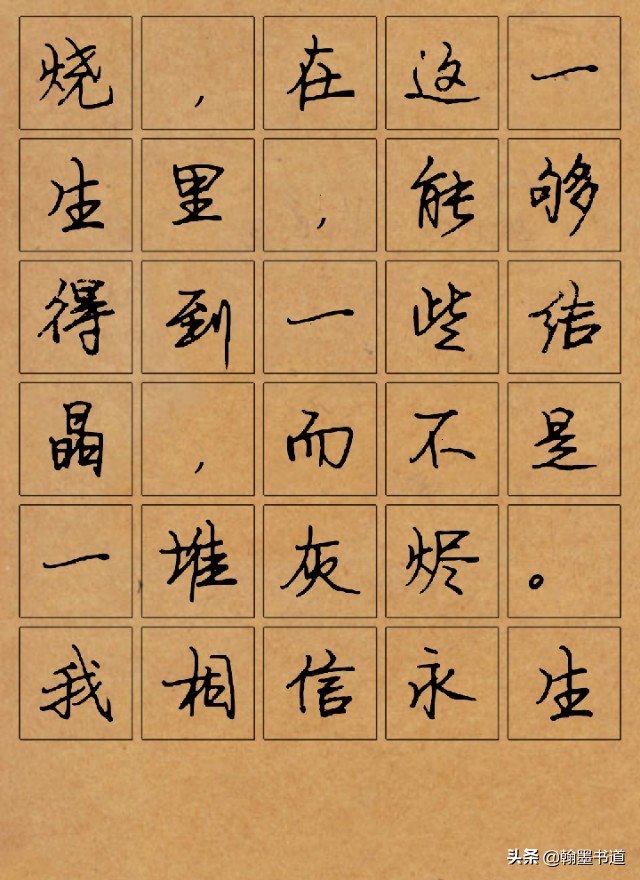 烧，在这一
生里，能够
得到一些结
晶，而不是
一堆灰烬。
我相信永生
头条 @翰墨书道